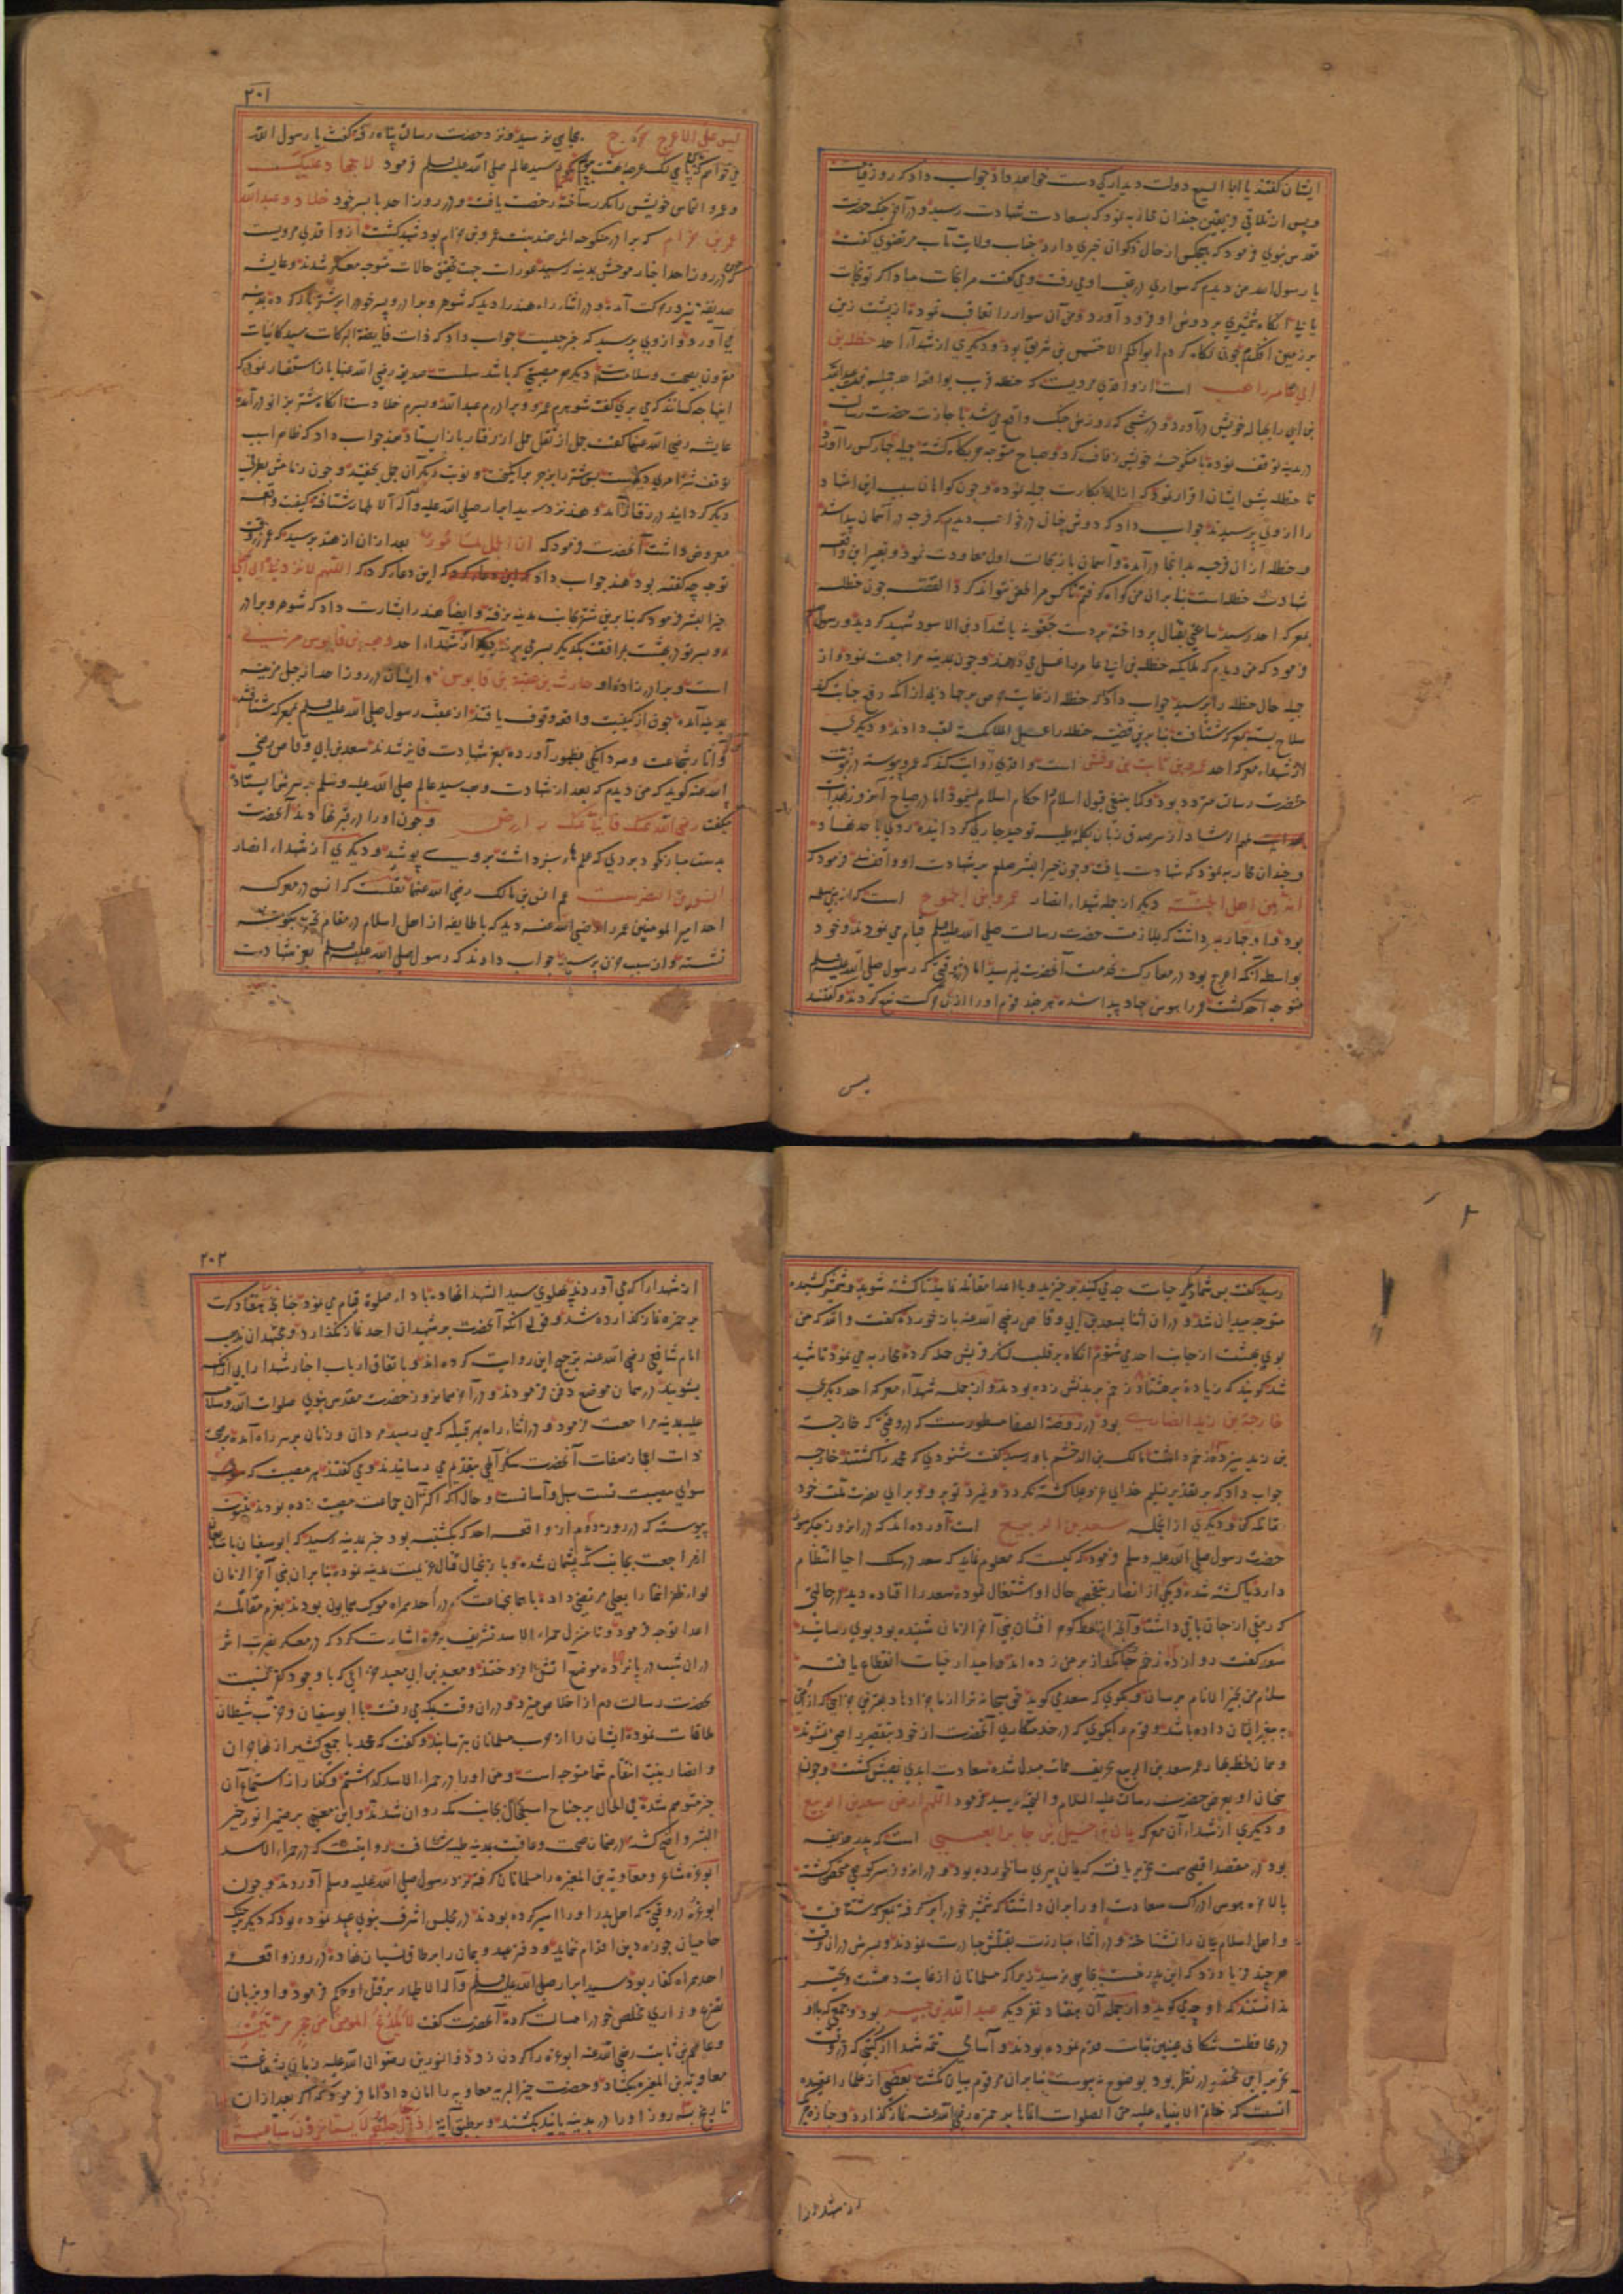 ایشان گفتند یا ابا السبع دولت دیدار کی دست خواهد داد جواب داد که روز قیامت
و پس از تلاقی فریقین چندان محاربه نمود که بسعادت شهادت رسید و در آخر جنگ حضرت
مقدس نبوی فرمود که هیچکس از حال ذکوان خبری دارد جناب ولایت مآب مرتضوی گفت
یا رسول الله من دیدم که سواری در عقب او می رفت و می گفت مرا نجات مباد اگر تو نجات
یابی انگاه شمشیری بر دوش او فرود آورد و من آن سوار را تعاقب نموده از پشت زین
بر زمین افکندم چون نگاه کردم ابو الحکم الاخنس بن شریق بود و دیگری از شهداء احد حنظله بن
ابی عامر راهب است از واقدی مرویست که حنظله قریب بواقعه احد جمیله بنت عبدالله
بن ابی را بحباله خویش درآورد و در شبی که روز مل جنگ واقع می شد با جازت حضرت رسالت
در مدینه توقف نموده با منکوحه خویش زفاف کرد و صباح متوجه حربگاه گشته جمیله چهار کس را آورد
تا حنظله پیش ایشان اقرار نمود که ازاله بکارت جمیله نموده و چون گواهان سبب این اشهاد
را از وی پرسیدند جواب داد که دوش چنان در خواب دیدم که فرجه در آسمان پیدا شد
و حنظله ازان فرجه بدانجا درآمده و آسمان باز بحالت اول معاودت نمود و تعبیر این واقعه
شهادت حنظله است بنا بران من گواه گرفتم تا کس مرا طعن نتواند کرد القصه چون حنظله
بمعرکه احد رسید ساعتی بقتال پرداخته بر دست جعونه یا شداد بن الاسود شهید گردید و رسول
فرمود که من دیدم که ملایکه حنظله بن ابی عامر را غسل می دهند و چون بمدینه مراجعت نمود و از
جمیله حال حنظله را پرسید جواب داد که حنظله از غایت حرص بر جهاد پیش ازانکه رفع جنابت کند
سلاح بسته بمعرکه شتافت بنا برین قضیه حنظله را غسیل الملائکه لقب دادند و دیگری
از شهداء معرکه احد عمرو بن ثابت بن وقش است و واقدی روایت کند که عمرو پیوسته در نبوت
حضرت رسالت متردد بود و کما ینبغی قبول اسلام و احکام اسلام نمینمود اما در صباح آنروز بهدایت
ملهم الرشاد از سر صدق زبان بکلمه طیبه توحید جاری گردانیده روی باحد نهاد
و چندان محاربه نمود که شهادت یافت و چون خیر البشر صلعم بر شهادت او واقف شد فرمود که
انه لمن اهل الجنة دیگر از جمله شهداء انصار عمرو بن الجموح است که از بنی سلمه
بود و او چهار پسر داشت که بملازمت حضرت رسالت صلی الله علیه وسلم قیام می نمودند و خود
بواسطه آنکه اعرج بود در معارک بخدمت آنحضرت نمیرسید اما در وقتی که رسول صلی الله علیه وسلم
متوجه احد گشت عمرو را هوس جهاد پیدا شده هر چند قوم او را ازان حرکت نهی کردند و گفتند
لیس
۲۰۱
لیس علی الاعرج حرج بجایی نرسید و نزد حضرت رسالت پناه رفته گفت یا رسول الله
می خواهم که باین پای لنگ عرصه بهشت بپیمایم سید عالم صلی الله علیه وسلم فرمود لا جهاد علیک
و عمرو التماس خویش را مکرر ساخته رخصت یافت و در روز احد با پسر خود خلاد و عبدالله
عمرو بن حرام که برادر منکوحه اش هند بنت عمرو بن حرام بود شهید گشت از واقدی مرویست
که چون در روز احد اخبار موحش بمدینه رسید عورات جهت تحقیق حالات متوجه معسکر شدند و عایشه
صدیقه نیز در حرکت آمده و در اثناء راه هند را دید که شوهر و برادر و پسر خود را بر شتر بار کرده بمدینه
می آورد و از وی پرسید که خبر چیست جواب داد که ذات فایضة البرکات سید کاینات
مقرون بصحت و سلامت است و دیگر هر مصیبتی که باشد سهلست صدیقه رضی الله عنها باز استفسار نمود که
اینها چه کسانند که می بری گفت شوهرم عمرو و برادرم عبدالله و پسرم خلاد است انگاه شتر بزانو درآمد
عایشه رضی الله عنها گفت جمل از ثقل حمل از رفتار باز ایستاد هند جواب داد که ظاهرا سبب
توقف شتر امری دیگرست پس شتر را بزجر برانگیخت و نوبت دیگر آن جمل بخفتید و چون زمامش بطرف
دیگر گردانید در رفتار آمد و هند نزد سید ابرار صلی الله علیه و آله الاطهار شتافته کیفیت واقعه
معروض داشت آنحضرت فرمود که ان الجمل لمامور بعد ازان از هند پرسید که عمرو در وقت
توجه چه گفته بود هند جواب داد که این دعا کرد که اللهم لا تردنی الی اهلی
خیر البشر فرمود که بنا برین شتر بجانب مدینه نرفته و ایضا هند را بشارت داد که شوهر و برادر
و پسر تو در بهشت مرافقت یکدیگر بسر می برند دیگر از شهداء احد وهب بن قابوس مزنی
است و برادرزاده او حارث بن عقبه بن قابوس و ایشان در روز احد از جبل مزینه
بمدینه آمده چون از کیفیت واقعه وقوف یافتند از عقب رسول صلی الله علیه وسلم بمعرکه شتافتند
و آثار شجاعت و مردانگی بظهور آورده بعز شهادت فایز شدند سعد بن ابی وقاص رضی
الله عنه گوید که من دیدم که بعد از شهادت وهب سید عالم صلی الله علیه وسلم بر سرش ایستاده
میگفت رضی الله عنک فانا عنک راض و چون او را در قبر نهادند آنحضرت
بدست مبارک خود بردی که علمهاء سرخ داشت بر وی پوشید و دیگری از شهداء انصار
انس بن النضر است عم انس بن مالک رضی الله عنهما نقلست که انس در معرکه
احد امیر المومنین عمر را رضی الله عنه دید که با طایفه از اهل اسلام در مقام تحیر بگوشه
نشسته و ازان سبب حزن پرسید جواب دادند که رسول صلی الله علیه وسلم بعز شهادت
رسید گفت پس شما دیگر حیات چه می کنید برخیزید و با اعدا مقاتله نمایید تا کشته شوید و شمشیر کشیده
متوجه میدان شد و دران اثنا بسعد بن ابی وقاص رضی الله عنه باز خورده گفت والله که من
بوی بهشت از جانب احد می شنوم انگاه بر قلب لشکر قریش حمله کرده محاربه می نمود تا شهید
شد گویند که زیاده بر هشتاد زخم بر بدنش زده بودند و از جمله شهداء معرکه احد دیگری
خارجة بن زید انصاریست بود در روضة الصفا مسطورست که در وقتی که خارجه
بن زید سیزده زخم داشت مالک بن الدخشم باو رسید گفت شنودی که محمد را کشتند خارجه
جواب داد که بر تقدیر تسلیم خدای عز و علا کشته نگردد و نمیرد تو برو و برای نصرت ملت خود
مقاتله کن و دیگری از آنجمله سعد بن الربیع است آورده اند که در انروز جگر سوز
حضرت رسول صلی الله علیه وسلم فرمود که کیست که معلوم نماید که سعد در سلک احیا انتظام
دارد یا کشته شده و یکی از انصار بتفحص حال او اشتغال نموده سعد را افتاده دید در حالتی
که رمقی از جان باقی داشت و آنچه از لفظ گوهر افشان نبی آخر الزمان شنیده بود بوی رسانید
سعد گفت دوازده زخم جانگداز بر من زده اند و امید از حیات انقطاع یافته
سلام من بخیر الانام برسان و بگوی که سعد می گوید حق سبحانه ترا از ما جزا دهاد بهترین جزایی که از امتی
به پیغمبر ایشان داده باشد و قوم را بگوی که در خدمتکاری آنحضرت از خود بتقصیر راضی نشوند
و همان لحظه بهار عمر سعد بن الربیع بخریف ممات مبدل شده سعادت ابدی نصیبش گشت و چون
سخنان او بعرض حضرت رسالت علیه السلام و التحیه رسید فرمود اللهم ارض سعد بن الربیع
و دیگری از شهداء آن معرکه یمان بن حسیل بن جابر العبسی است که پدر حذیفه
بود در مقصد اقصی سمت تحریر یافته که یمان پیری سالخورده بود و در انروز بسر کوچی مختفی گشته
بالاخره هوس ادراک سعادت او را بران داشت که شمشیر خود را بر گرفته بمعرکه شتافت
و اهل اسلام یمان را نشناخته و در اثناء مبارزت بقتلش مبادرت نمودند و پسرش دران وقت
هر چند فریاد زد که این پدر منست بجایی نرسید زیرا که مسلمانان از غایت دهشت و تحیر
ندانستند که او چه می گوید و از جمله آن هفتاد نفر دیگر عبد الله بن جبیر بود و جمعی که با او
در محافظت شکاف عینین ثبات قدم نموده بودند و آسامی تتمه شهدا از کتبی که در وقت
تحریر این مختصر در نظر بود بوضوح نه پیوست بنا بران مرقوم بیان نگشت بعضی از علما را عقیده
آنست که خاتم الانبیاء علیه من الصلوات انماها بر حمزه رضی الله عنه نماز گذارد و جنازه هر یک
از شهدا را
۲۰۲
از شهدا را که می آوردند پهلوی سید الشهدا نهاده باداء صلوة قیام می نمود چنانچه هفتاد کرت
بر حمزه نماز گذارده شد و قولی آنکه آنحضرت بر شهیدان احد نماز نگذارد و مجتهدان مذهب
امام شافعی رضی الله عنه ترجیح این روایت کرده اند و باتفاق ارباب اخبار شهدا را بی آنکه
بشویند در همان موضع دفن فرمودند و در آخر همانروز حضرت مقدس نبوی صلوات الله و سلامه
علیه بمدینه مراجعت فرمود و در اثناء راه بهر قبیله که می رسید مردان و زنان بر سر راه آمده بر صحت
ذات اعجاز صفات آنحضرت شکر آلهی بتقدیم می رسانیدند و می گفتند هر مصیبت که
سوای مصیبت تست سهل و آسانست و حال آنکه اکثر آن جماعت مصیبت زده بودند بثبوت
پیوسته که در روز دوم از واقعه احد که یکشنبه بود خبر بمدینه رسید که ابوسفیان با متابعان
از مراجعت بجانب مکه پشیمان شده و باز بخیال قتال عزیمت مدینه نموده بنا بران نبی آخر الزمان
لواء ظفر انتما را بعلی مرتضی داده با جماعتی که در احد همراه موکب همایون بودند بعزم مقاتله
اعدا توجه فرمود و تا منزل حمراء الاسد تشریف برده اشارت کرد که در معسکر نصرت اثر
دران شب در پانزده موضع آتش افروختند و معبد بن ابی معبد خزاعی که با وجود کفر نسبت
بحضرت رسالت دم از اخلاص میزد و دران وقت بمکه می رفت با ابوسفیان و حزب شیطان
ملاقات نموده ایشان را از حرب مسلمانان بترسانید و گفت که محمد با جمعی کثیر از مهاجران
و انصار بنیت انتقام شما متوجه است و من او را در حمراء الاسد گذاشتم و کفار از استماع آن
خبر متوهم شده فی الحال بر جناح استعجال بجانب مکه روان شدند و این معنی بر ضمیر انور خیر
البشر واضح گشته در ضمان صحت و عافیت بمدینه طیبه شتافت روایتست که در حمراء الاسد
ابو عزه شاعر و معاویه بن المغیره را مسلمانان گرفته نزد رسول صلی الله علیه وسلم آوردند و چون
ابو عزه در وقتی که اهل بدر او را اسیر کرده بودند در مجلس اشرف نبوی عهد نموده بود که دیگر بجنگ
حامیان حوزه دین اقدام ننماید و دفتر عهد و پیمان را بر طاق نسیان نهاده در روز واقعه
احد همراه کفار بود سید ابرار صلی الله علیه وسلم و آله الاطهار بر قتل او حکم فرمود و او بزبان
تضرع و زاری مخلص خود را مسالت کرده آنحضرت گفت لا یلدغ المومن من جحر مرتین
و عاصم بن ثابت رضی الله عنه ابو عزه را گردن زد و ذو النورین رضوان الله علیه زبان بشفاعت
معاویه بن المغیره بگشاد و حضرت خیر البریه معاویه را امان داد اما فرمود که اگر بعد ازان
تاریخ سه روز او را در مدینه یابند بکشند و بر طبق آیه اذا جاء اجلهم لا یستاخرون ساعة